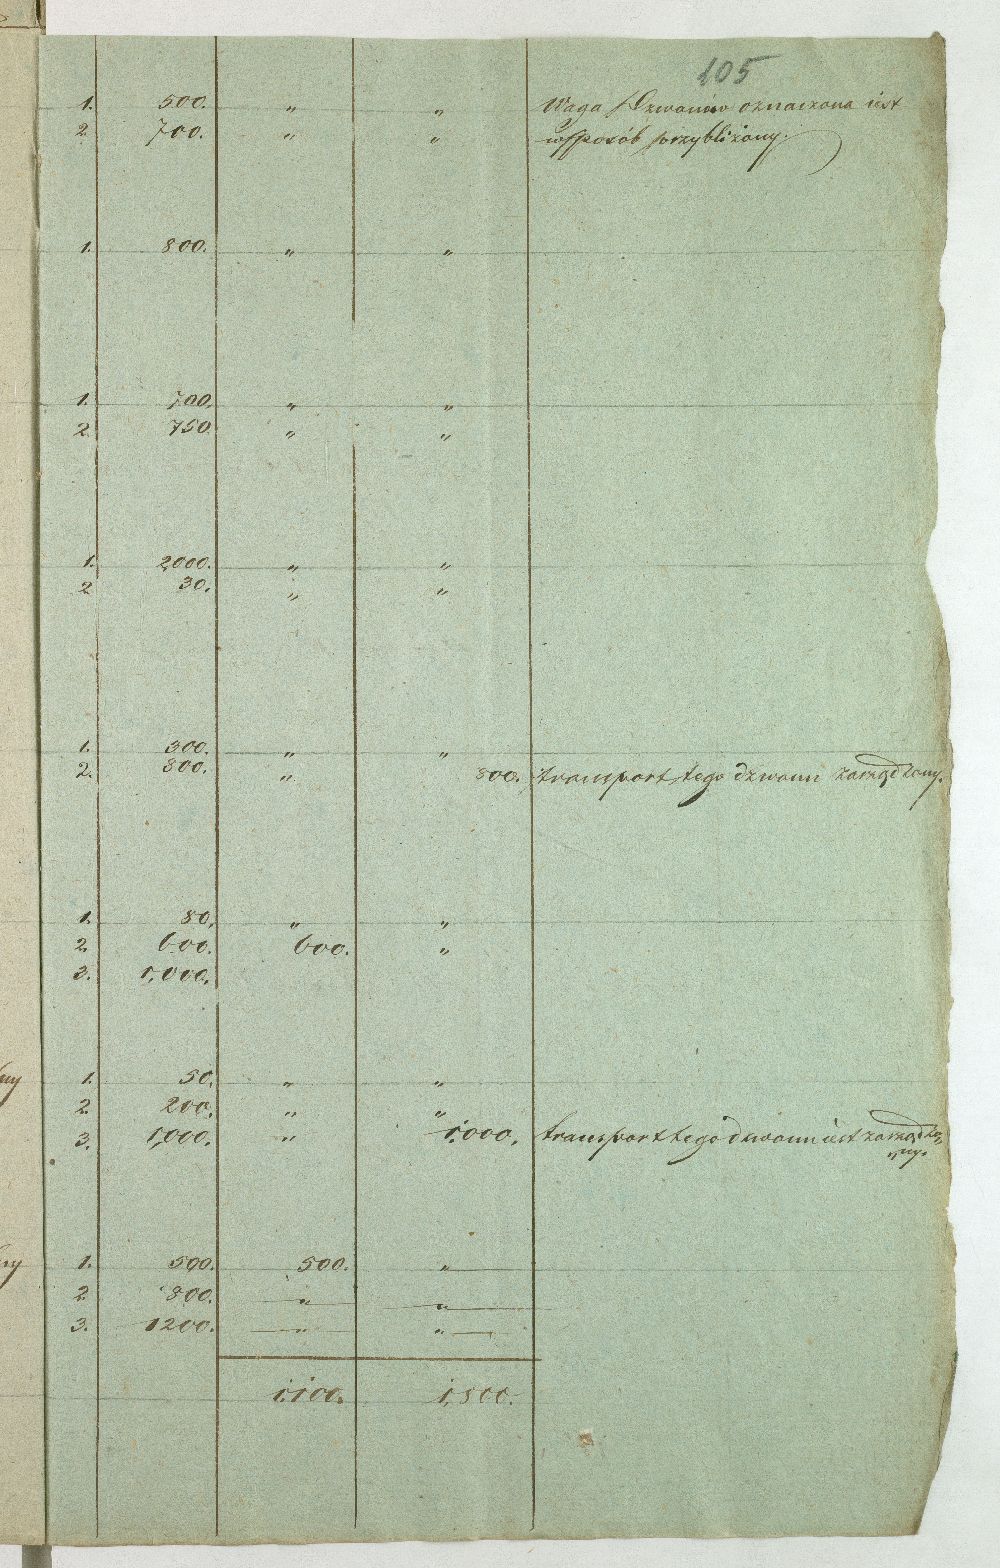 105
1. 500. " " Waga Dzwonów oznaczona iest
2. 700. " " w sposób przybliżony.
1. 800. " "
1. 700. " "
2. 750 " "
1. 2000. " "
2 30. " "
1. 300. " "
2. 800. " 800. transport tego dzwonu zarządzony.
1. 80. " "
2. 600. 600. "
3. 1,000.
ny 1. 50. " "
2. 200. " "
3. 1,000. " 1.000. transport tego dzwonu iest zarządzo
"ny.
ny 1. 500. 500. "
2 800. " "
3. 1200. " "
1.100. 1,800.